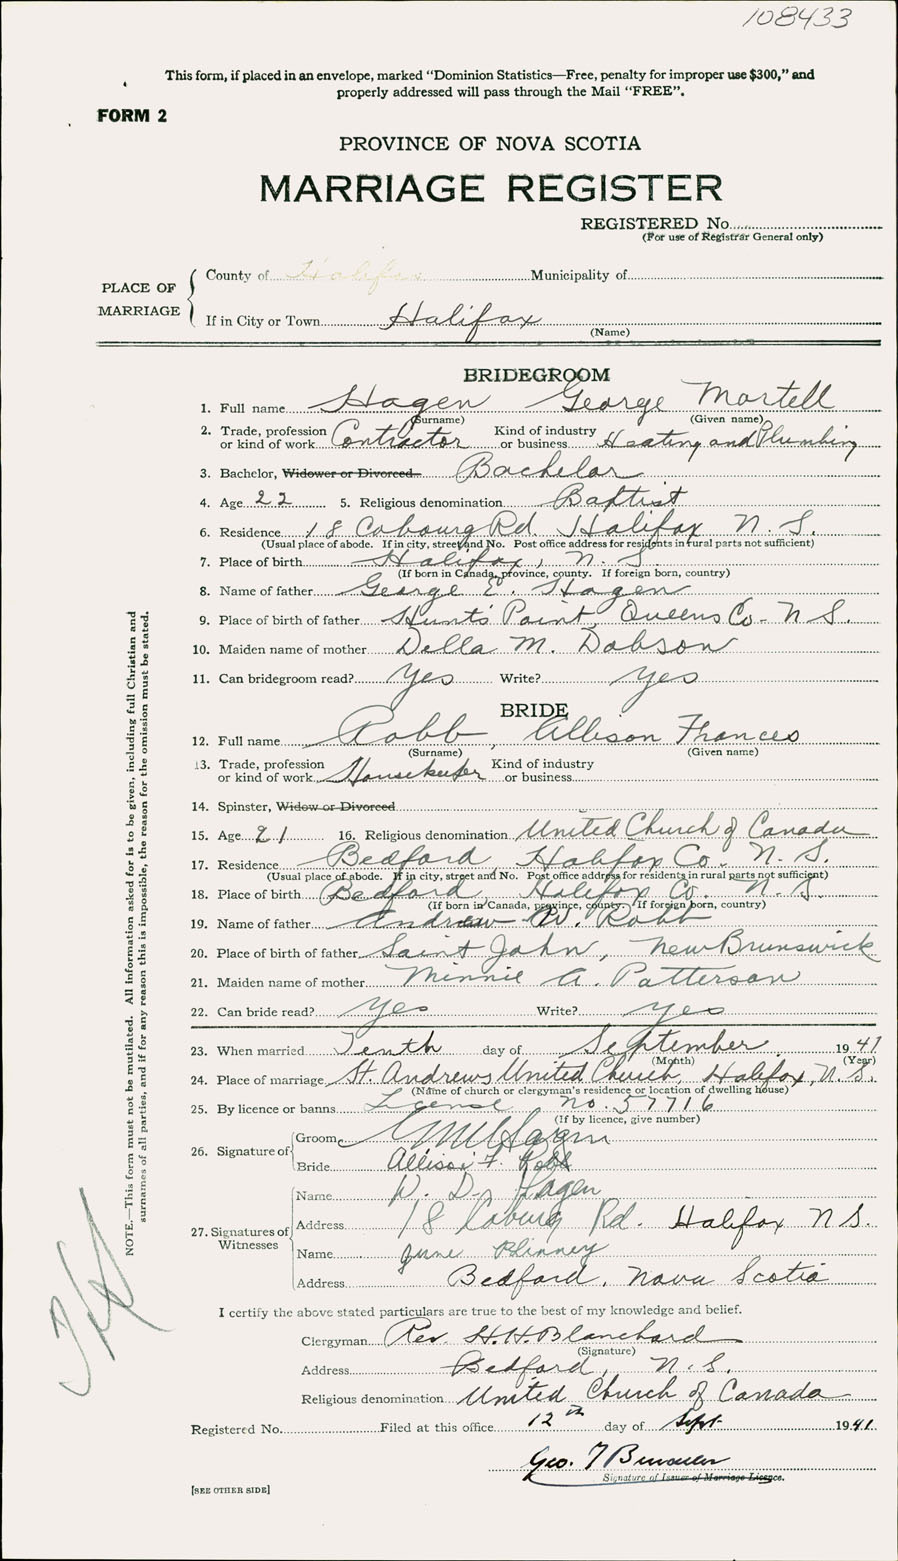 108433
This form, if placed in an envelope, marked "Dominion Statistics—Free, penalty for improper use $300," and
properly addressed will pass through the Mail "FREE".
FORM 2
PROVINCE OF NOVA SCOTIA
MARRIAGE REGISTER
REGISTERED No.
(For use of Registrar General only)
PLACE OF MARRIAGE
County of Halifax Municipality of
If in City or Town Halifax
(Name)
BRIDEGROOM
1. Full name Hagen George Martell
(Surname) (Given name)
2. Trade, profession or kind of work Contractor Kind of industry or business Heating and Plumbing
3. Bachelor, Widower or Divorced Bachelor
4. Age 22 5. Religious denomination Baptist
6. Residence 18 Cobourg Rd. Halifax N. S.
(Usual place of abode. If in city, street and No. Post office address for residents in rural parts not sufficient)
7. Place of birth Halifax, N. S.
(If born in Canada, province, county. If foreign born, country)
8. Name of father George E. Hagen
9. Place of birth of father Hunt's Point, Queens Co. N S.
10. Maiden name of mother Della M. Dobson
11. Can bridegroom read? Yes Write? Yes
BRIDE
12. Full name Robb, Allison Frances
(Surname) (Given name)
13. Trade, profession or kind of work Housekeeper Kind of industry or business
14. Spinster, Widow or Divorced
15. Age 21 16. Religious denomination United Church of Canada
17. Residence Bedford, Halifax Co. N. S.
(Usual place of abode. If in city, street and No. Post office address for residents in rural parts not sufficient)
18. Place of birth Bedford Halifax Co. N. S.
(If born in Canada, province, county. If foreign born, country)
19. Name of father Andrew W. Robb
20. Place of birth of father Saint John, New Brunswick
21. Maiden name of mother Minnie A. Patterson
22. Can bride read? Yes Write? Yes
23. When married Tenth day of September 1941
(Month) (Year)
24. Place of marriage St. Andrews United Church, Halifax, N. S.
(Name of church or clergyman's residence or location of dwelling house)
25. By licence or banns License No. 57716
(If by licence, give number)
26. Signature of Groom G M Hagen
Bride Allison F. Robb
27. Signatures of Witnesses
Name W. D. Hagen
Address 18 Coburg Rd. Halifax N S.
Name June Blinney
Address Bedford, Nova Scotia
I certify the above stated particulars are true to the best of my knowledge and belief.
Clergyman Rev H. H. Blanchard
(Signature)
Address Bedford, N. S.
Religious denomination United Church of Canada
Registered No. Filed at this office 12th day of Sept 1941.
Geo.
Signature of Issuer of Marriage Licence.
[SEE OTHER SIDE]
NOTE.—This form must not be mutilated. All information asked for is to be given, including full Christian and
surnames of all parties, and if for any reason this is impossible, the reason for the omission must be stated.